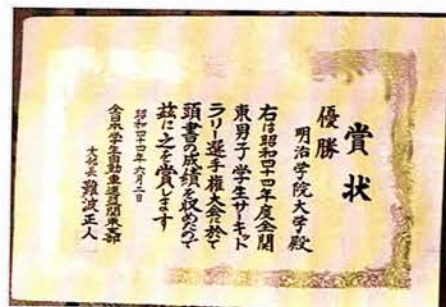 賞状
優勝
明治学院大学殿
右は昭和四十四年度全関
東男子学生サーキット
ラリー選手権大会に於て
頭書の成績を収めたので
茲に之を賞します
昭和四十四年六月二日
全日本学生自動車連盟関東支部
支部長 難波正人